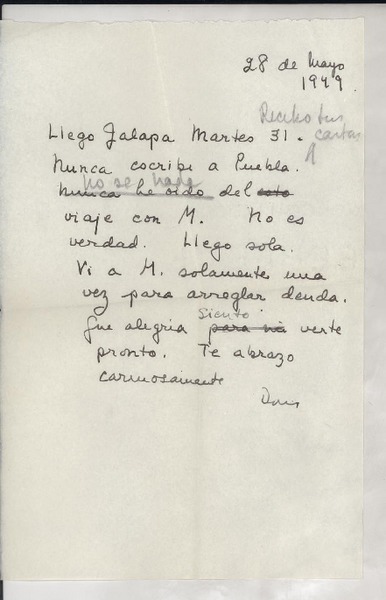 28 de Mayo
1949
Recibo tus
cartas
Llego Jalapa Martes 31.
Nunca escribi a Puebla.
no se nada
Nunca he oido del esto
viaje con M. No es
verdad. Llego sola.
Vi a M. solamente una
vez para arreglar deuda.
siento
Que alegria para mi verte
pronto. Te abrazo
carinosamente
Doris